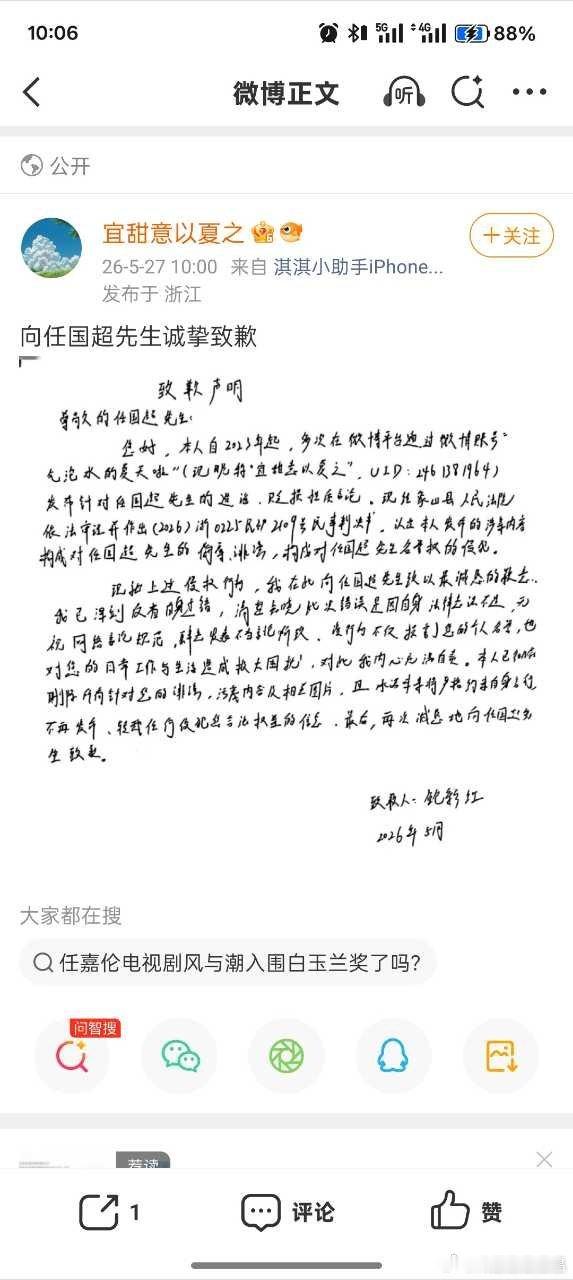 10:06
5G
4G
88%
微博正文
听
公开
宜甜意以夏之
+关注
26-5-27 10:00 来自 淇淇小助手iPhone...
发布于 浙江
向任国超先生诚挚致歉
致歉声明
尊敬的任国超先生:
您好,本人自2023年起,多次在微博平台通过微博账号"
气泡水的夏天啦"(现昵称"宜甜意以夏之",UID:2461381964)
发布针对任国超先生的 贬损性言论。现经象山县人民法院
依法审理并作出(2026)浙0225民初2109号民事判决书,认定本人发布的涉案内容
构成对任国超先生的侮辱、诽谤,构成对任国超先生名誉权的侵犯。
现就上述侵权行为,我在此向任国超先生致以最诚恳的歉意。
我已深刻反省自身过错,清楚 此次错误是因自身法律意识不足,无
视网络言论规范,肆意发表不当言论所致。该行为不仅损害了您的个人名誉,也
对您的日常工作与生活造成极大困扰,对此我内心无法自责。本人已
删除所有针对您的诽谤,污蔑内容及相关图片,且承诺未来将严格约束自身言行
不再发布、转载任何侵犯您合法权益的信息。最后,再次诚恳地向任国超先
生致歉。
致歉人:鲍彩红
2026年5月
大家都在搜
任嘉伦电视剧风与潮入围白玉兰奖了吗?
问智搜
荐读
1
评论
赞